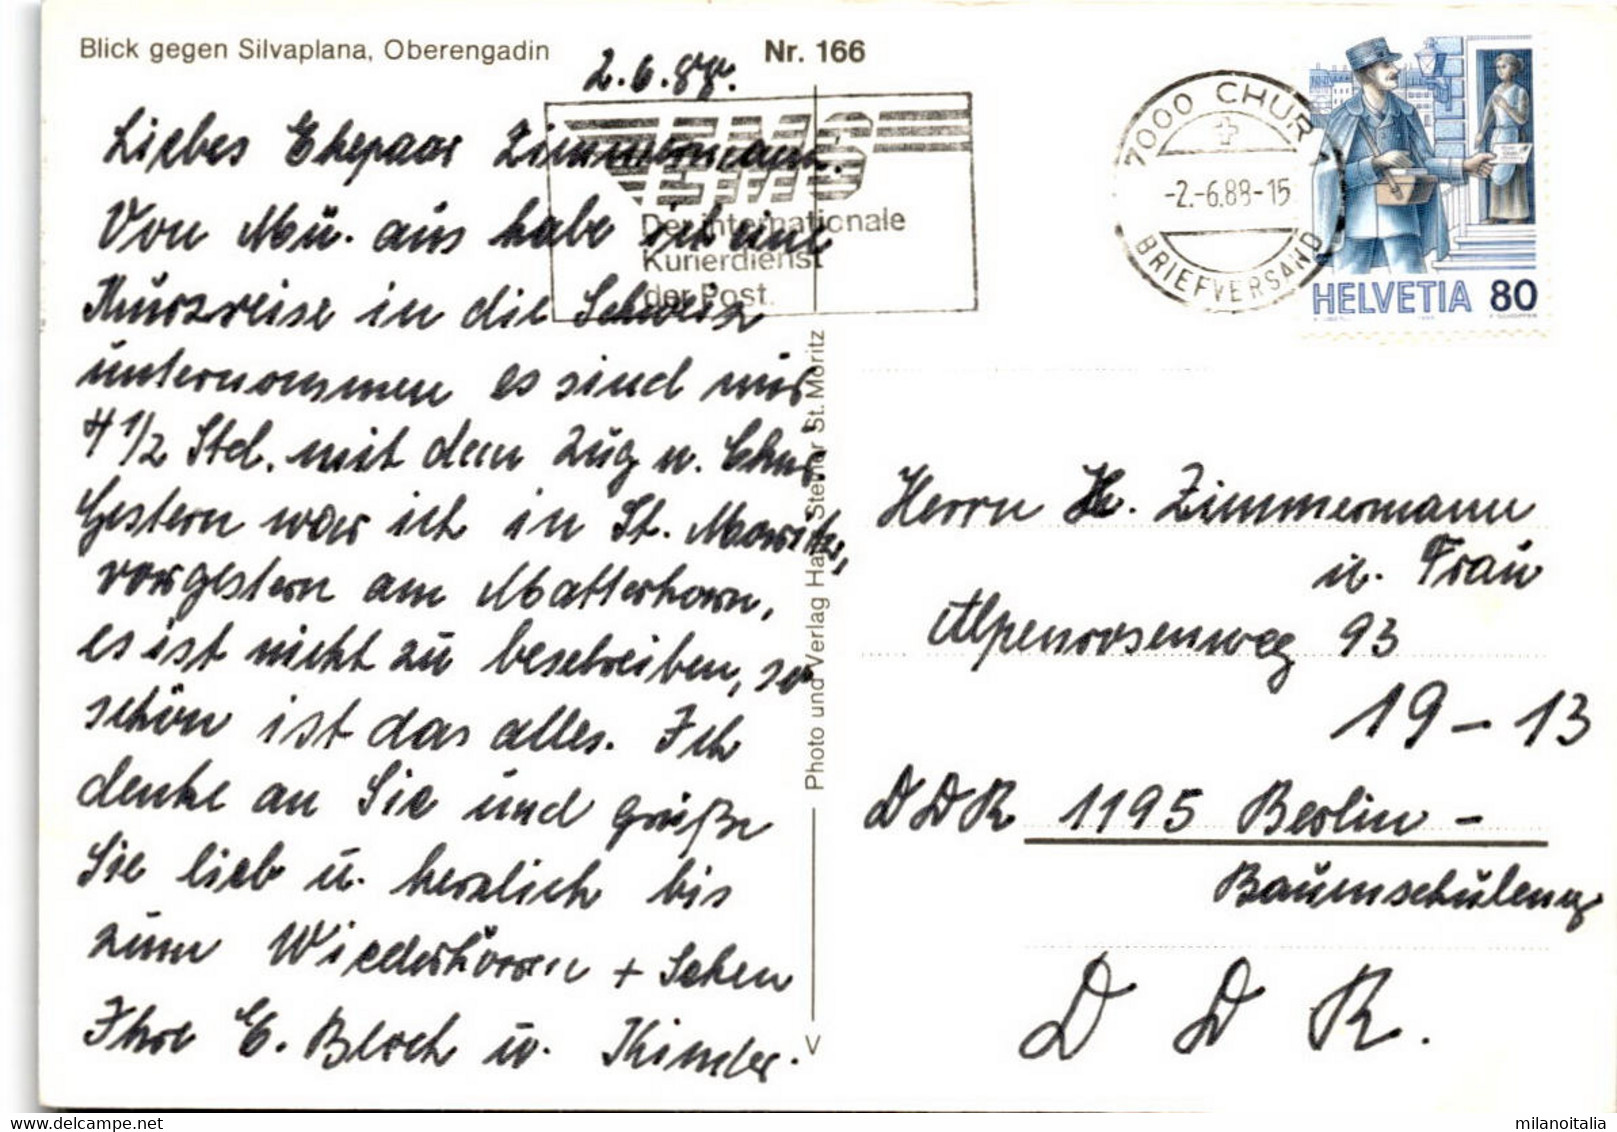 Blick gegen Silvaplana, Oberengadin
Nr. 166
2.6.88.
Liebes Ehepaar Zimmermann.
Von Mü. aus habe ich eine
Kurzreise in die Schweiz
unternommen es sind nur
4 1/2 Std. mit dem Zug n. Chur
Gestern war ich in St. Moritz,
vorgestern am Matterhorn,
es ist nicht zu beschreiben, so
schön ist das alles. Ich
denke an Sie und grüße
Sie lieb u. herzlich bis
zum Wiederhören + Sehen
Ihre E. Bloch u. Kinder.
EMS
Der internationale
Kurierdienst
der Post.
7000 CHUR 1
-2.-6.88-15
BRIEFVERSAND
HELVETIA 80
Photo und Verlag Hans Steiner St. Moritz
V
Herrn H. Zimmermann
u. Frau
Alpenrosenweg 93
19-13
DDR 1195 Berlin-
Baumschulenweg
DDR.
delcampe.net
milanoitalia